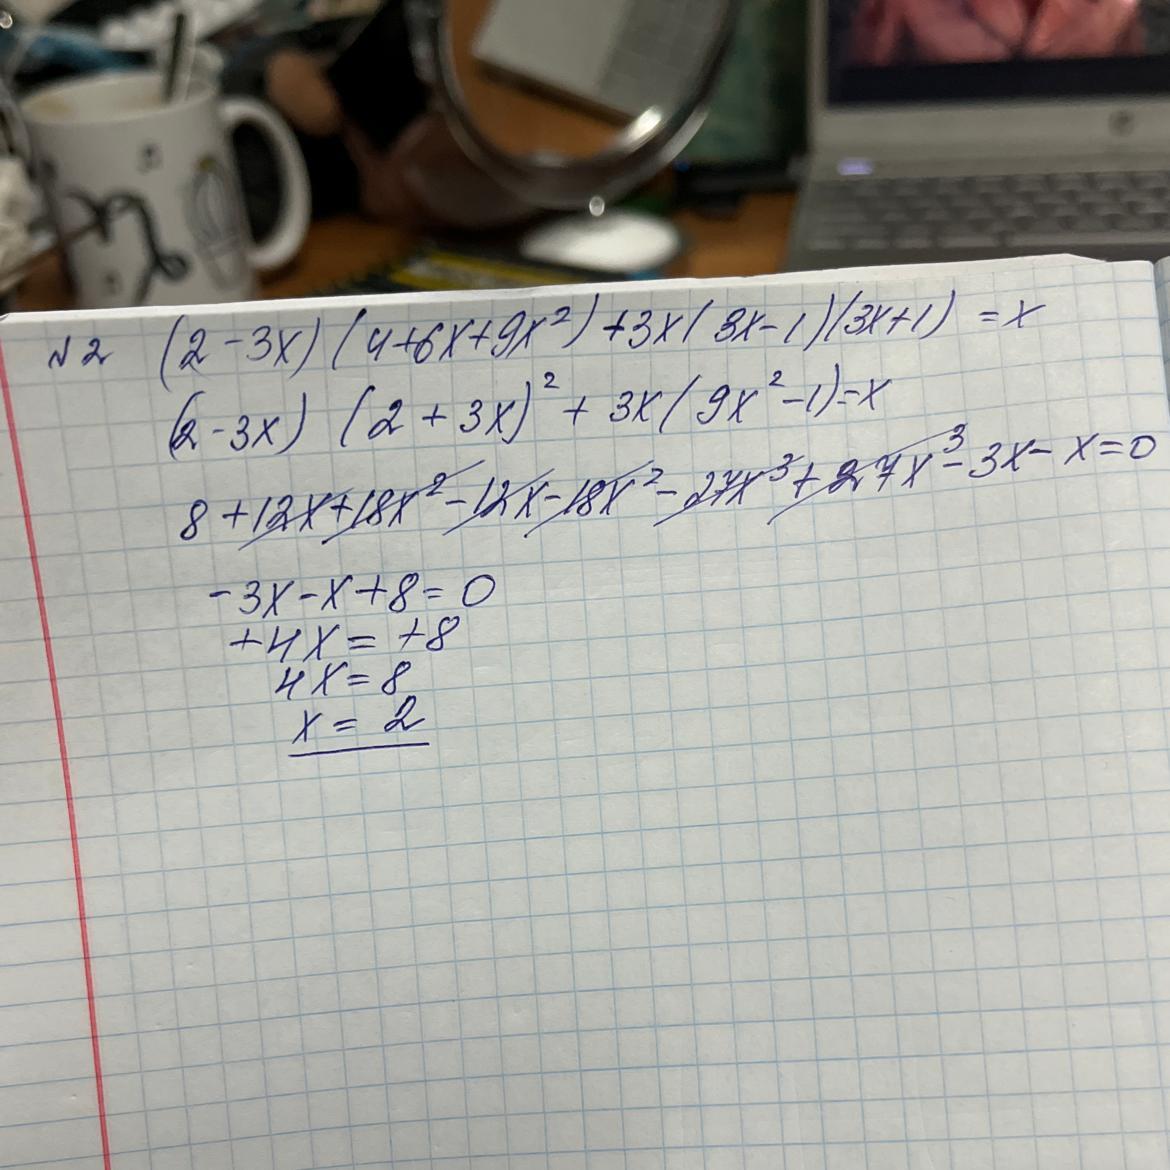 №2 (2-3x)(4+6x+9x²)+3x(3x-1)(3x+1)=x
(2-3x)(2+3x)²+3x(9x²-1)=x
8+12x+18x²-12x-18x²-27x³+27x³-3x-x=0
-3x-x+8=0
+4x=+8
4x=8
x=2